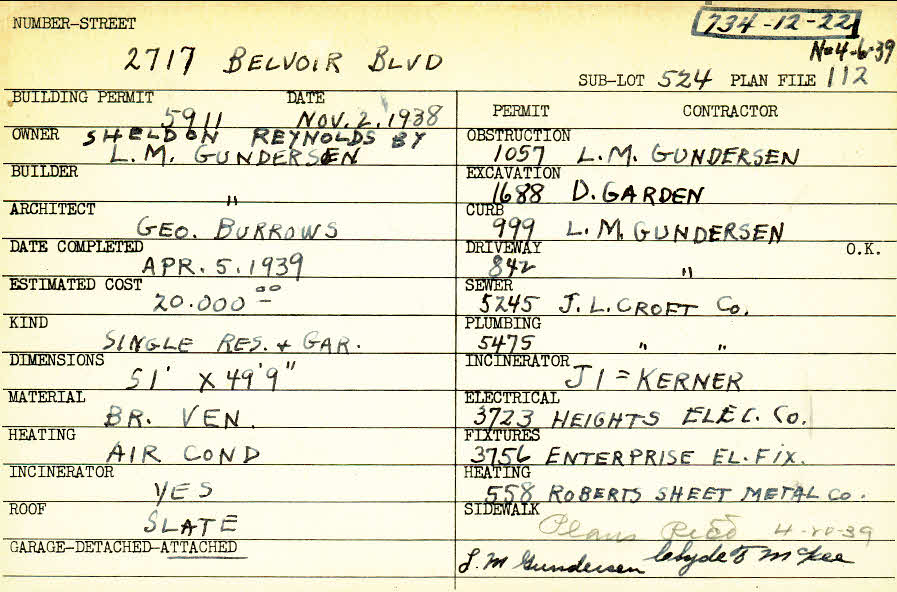 NUMBER-STREET
734-12-22
N=4-6-39
2717 BELVOIR BLVD
SUB-LOT 524 PLAN FILE 112
BUILDING PERMIT DATE
5911 NOV. 2. 1938
OWNER SHELDON REYNOLDS BY
L. M. GUNDERSEN
BUILDER
"
ARCHITECT
GEO. BURROWS
DATE COMPLETED
APR. 5. 1939
ESTIMATED COST
20.000 00
KIND
SINGLE RES. + GAR.
DIMENSIONS
51' X 49'9"
MATERIAL
BR. VEN.
HEATING
AIR COND
INCINERATOR
YES
ROOF
SLATE
GARAGE-DETACHED-ATTACHED
PERMIT CONTRACTOR
OBSTRUCTION
1057 L. M. GUNDERSEN
EXCAVATION
1688 D. GARDEN
CURB
999 L. M. GUNDERSEN
DRIVEWAY O.K.
842 "
SEWER
5245 J. L. CROFT CO.
PLUMBING
5475 " "
INCINERATOR
J1=KERNER
ELECTRICAL
3723 HEIGHTS ELEC. CO.
FIXTURES
3756 ENTERPRISE EL. FIX.
HEATING
558 ROBERTS SHEET METAL CO.
SIDEWALK
Plans 4-20-39
L. M Gundersen McGee